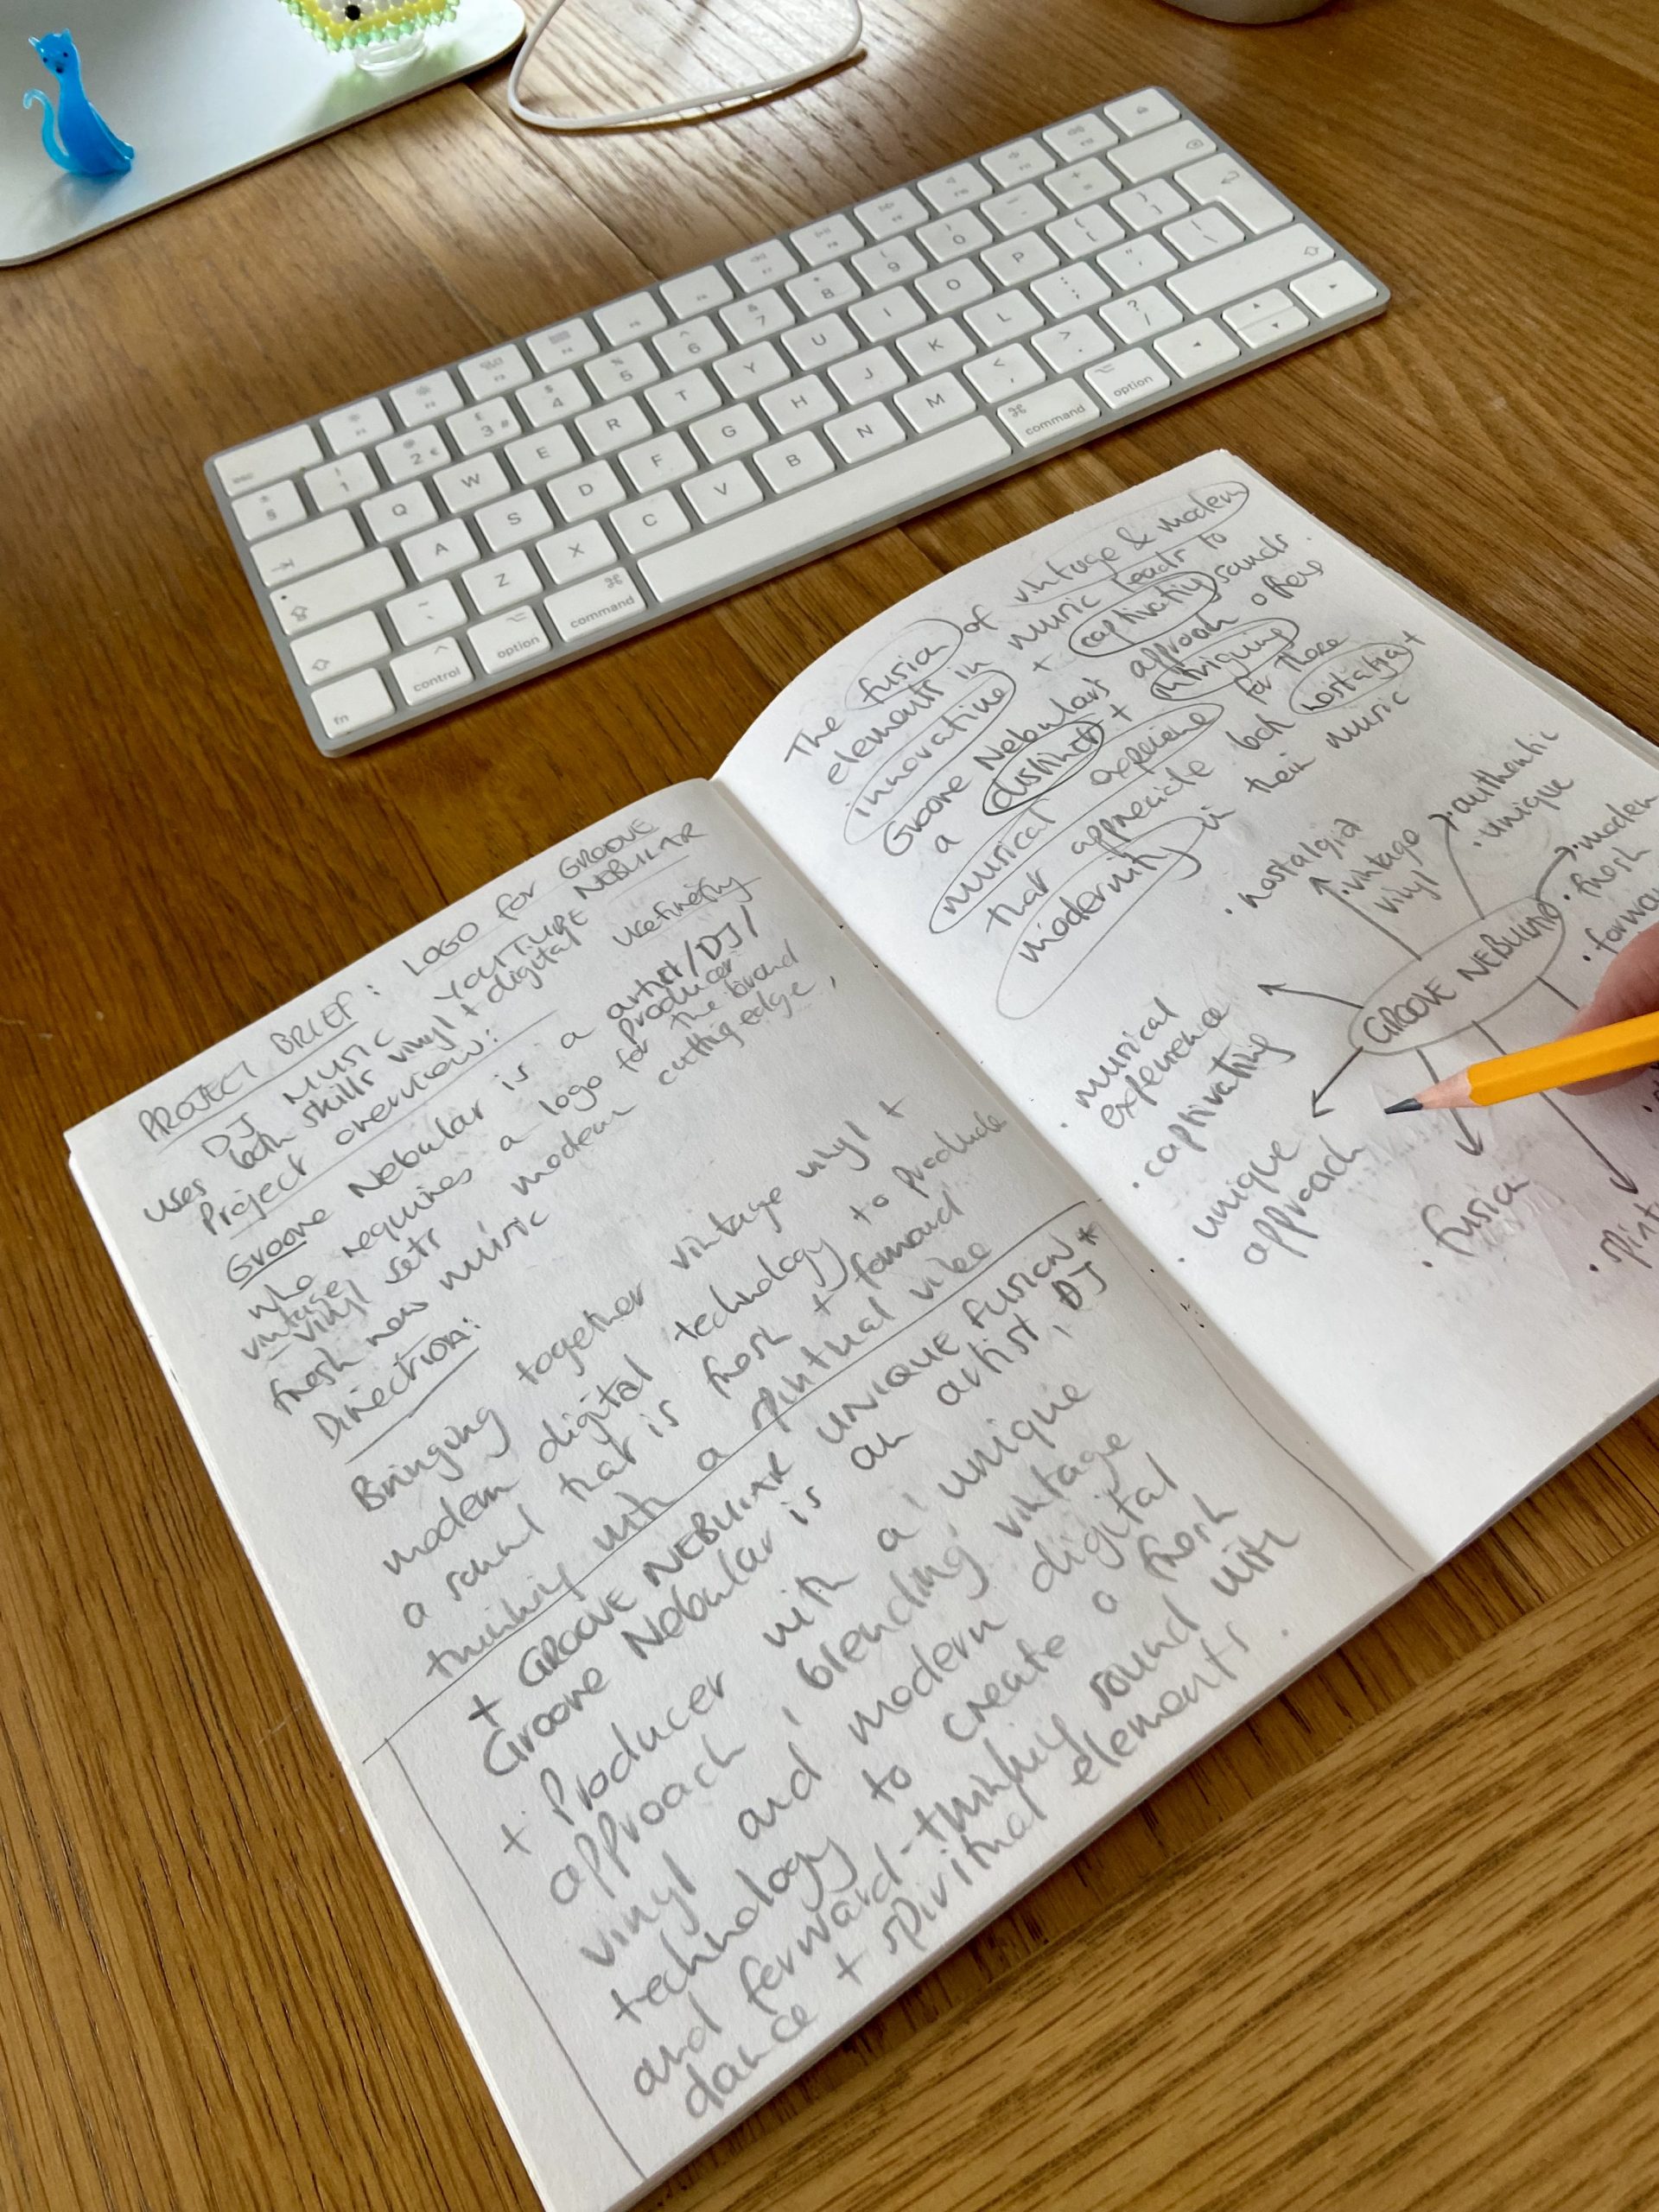 PROJECT BRIEF: LOGO for GROOVE
NEBULAR
DJ MUSIC YOUTUBE
uses both skills vinyl + digital
Project overview:
Groove Nebular is a artist/DJ/
producer
who requires a logo for the brand
vintage vinyl sets, modern cutting edge,
fresh new music
Direction:
Bringing together vintage vinyl +
modern digital technology to produce
a sound that is fresh + forward
thinking with a spiritual vibe
+ GROOVE NEBULAR UNIQUE FUSION +
Groove Nebular is an artist, DJ
+ Producer with a unique
approach, blending vintage
vinyl and modern digital
technology to create a fresh
and forward-thinking sound with
dance + spiritual elements.
The fusion of vintage & modern
elements in music leads to
innovative + captivating sounds.
Groove Nebulars approach offers
a distinct + intriguing
musical experience for those
that appreciate both nostalgia +
modernity in their music
· nostalgia
· vintage
vinyl
· authentic
· unique
· modern
· fresh
· forwa
GROOVE NEBULAR
· musical
experience
· captivating
· unique
approach
· fusion
· spirit
esc
F1
F2
F3
F4
§
! 1
@ 2 €
£ 3 #
$ 4
% 5
^ 6
& 7
* 8
( 9
) 0
_ -
+ =
Q W E R T Y U I O P { [ } ]
A S D F G H J K L : ; " ' | \
~ ` Z X C V B N M < , > . ? /
fn control option command command option